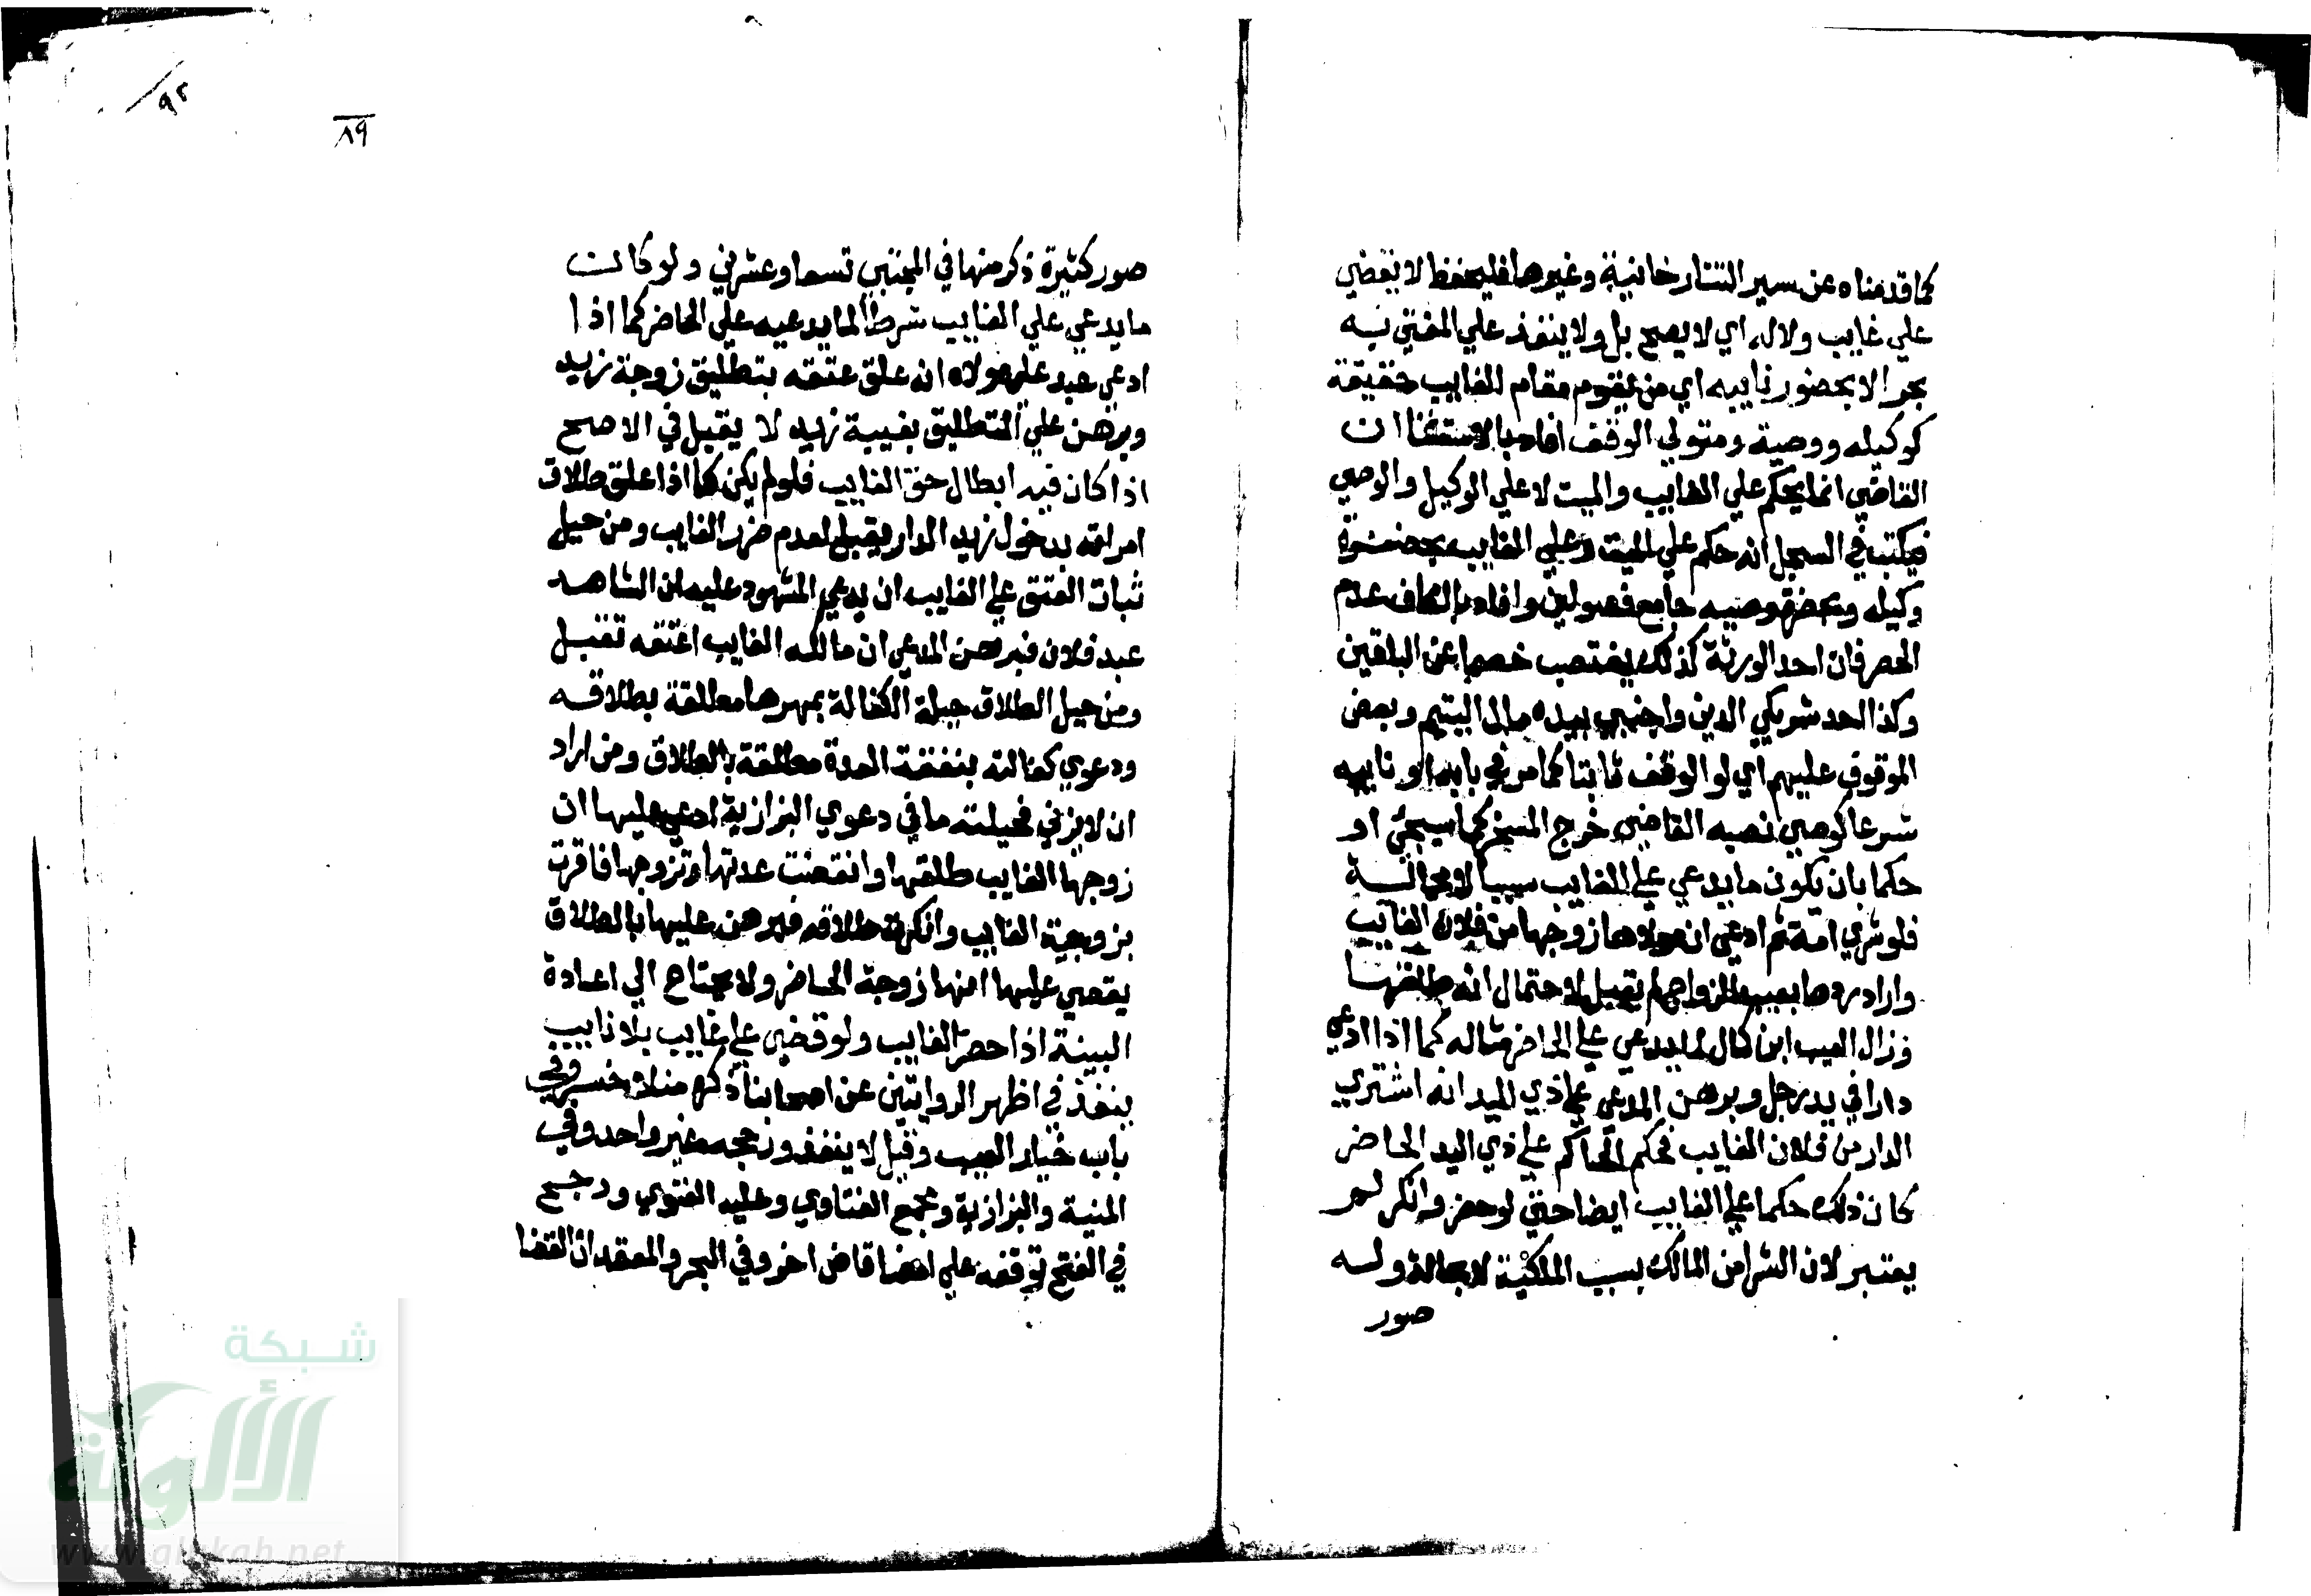 كما قدمناه عن سير التتارخانية وغيرها فليحفظ لا يقضي
علي غايب ولا له اي لا يصح بل ولا ينفذ علي المفتي به
بحر الا بحضور نايبه اي من يقوم مقام الغايب حقيقة
كوكيله ووصية ومتولي الوقف افاد بالاستثنا ان
القاضي انما يحكم علي الغايب والميت لا علي الوكيل والوصي
فيكتب في السجل انه حكم علي الميت وعلي الغايب بحضرة
وكيله وبحضرة وصيه جامع فصولين وافاد بالكاف عدم
الحصر فان احد الورثة كذلك ينتصب خصما عن الباقين
وكذا احد شريكي الدين واجنبي بيده مال اليتيم وبعض
الموقوف عليهم اي لو الوقف ثابتا كما مر في بابه او نايبه
شرعا كوصي نصبه القاضي خرج المسخر كما سيجئ او
حكما بان يكون ما يدعي علي الغايب سببا لا محالة
فلو شري امة ثم ادعي ان مولاها زوجها من فلان الغايب
واراد ردها بعيب الزواج لم يقبل لاحتمال انه طلقها
وزال العيب ابن كمال لما يدعي علي الحاضر مثاله كما اذا ادعي
دارا في يد رجل وبرهن المدعي علي ذي اليد انه اشتري
الدار من فلان الغايب فحكم الحاكم علي ذي اليد الحاضر
كان ذلك حكما علي الغايب ايضا حتي لو حضر وانكر لم
يعتبر لان الشرا من المالك سبب الملكية لا محالة وله
صور
٩٢
٨٩
صور كثيرة ذكر منها في المجتبي تسعا وعشرين ولو كانت
ما يدعي علي الغايب شرطا لما يدعيه علي الحاضر كما اذا
ادعي عبد علي مولاه انه علق عتقه بتطليق زوجة زيد
وبرهن علي التطليق بغيبة زيد لا يقبل في الاصح
اذا كان فيه ابطال حق الغايب فلو لم يكن كما اذا علق طلاق
امراته بدخول زيد الدار يقبل لعدم ضرر الغايب ومن حيل
ثبات العتق علي الغايب ان يدعي المشهود عليه ان الشاهد
عبد فلان فبرهن المدعي ان مالكه الغايب اعتقه تقبل
ومن حيل الطلاق حيلة الكفالة بمهرها معلقة بطلاقه
ودعوي كفالته بنفقة العدة معلقة بالطلاق ومن اراد
ان لا يزني فحيلته ما في دعوي البزازية ادعي عليها ان
زوجها الغايب طلقها وانقضت عدتها وتزوجها فاقرت
بزوجية الغايب وانكرت طلاقه فبرهن عليها بالطلاق
يقضي عليها انها زوجة الحاضر ولا يحتاج الي اعادة
البينة اذا حضر الغايب ولو قضي علي غايب بلا نايب
ينفذ في اظهر الروايتين عن اصحابنا ذكره منلا خسرو في
باب خيار العيب وقيل لا ينفذ ورجحه غير واحد وفي
المنية والبزازية ومجمع الفتاوي وعليه الفتوي ورجح
في الفتح توقفه علي امضا قاض اخر وفي البحر والمعتمد ان القضا
شبكة
الألوكة
www.alukah.net